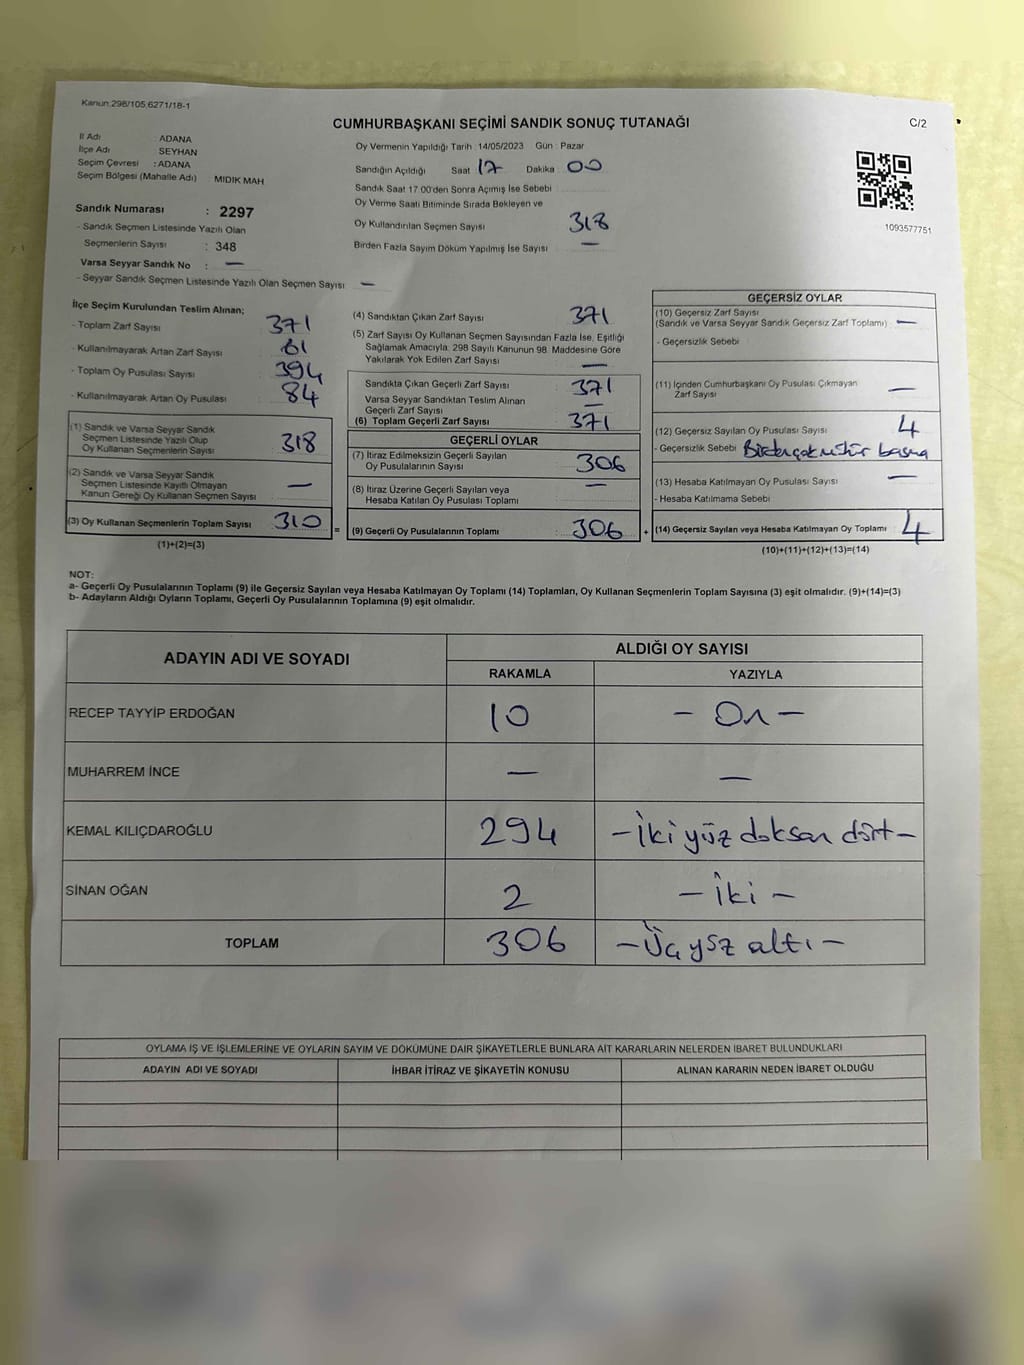 Kanun:298/105,6271/18-1
CUMHURBAŞKANI SEÇİMİ SANDIK SONUÇ TUTANAĞI
C/2
İl Adı ADANA
İlçe Adı SEYHAN
Seçim Çevresi : ADANA
Seçim Bölgesi (Mahalle Adı) MIDIK MAH
Sandık Numarası : 2297
- Sandık Seçmen Listesinde Yazılı Olan
Seçmenlerin Sayısı : 348
Varsa Seyyar Sandık No : —
- Seyyar Sandık Seçmen Listesinde Yazılı Olan Seçmen Sayısı —
Oy Vermenin Yapıldığı Tarih : 14/05/2023 Gün : Pazar
Sandığın Açıldığı Saat 17 Dakika 00
Sandık Saat 17:00'den Sonra Açılmış İse Sebebi
Oy Verme Saati Bitiminde Sırada Bekleyen ve
Oy Kullandırılan Seçmen Sayısı 318
Birden Fazla Sayım Döküm Yapılmış İse Sayısı —
1093577751
İlçe Seçim Kurulundan Teslim Alınan;
- Toplam Zarf Sayısı 371
- Kullanılmayarak Artan Zarf Sayısı 61
- Toplam Oy Pusulası Sayısı 394
- Kullanılmayarak Artan Oy Pusulası 84
(1) Sandık ve Varsa Seyyar Sandık
Seçmen Listesinde Yazılı Olup
Oy Kullanan Seçmenlerin Sayısı 318
(2) Sandık ve Varsa Seyyar Sandık
Seçmen Listesinde Kayıtlı Olmayan
Kanun Gereği Oy Kullanan Seçmen Sayısı —
(3) Oy Kullanan Seçmenlerin Toplam Sayısı 310 =
(1)+(2)=(3)
(4) Sandıktan Çıkan Zarf Sayısı 371
(5) Zarf Sayısı Oy Kullanan Seçmen Sayısından Fazla İse, Eşitliği
Sağlamak Amacıyla, 298 Sayılı Kanunun 98. Maddesine Göre
Yakılarak Yok Edilen Zarf Sayısı —
Sandıkta Çıkan Geçerli Zarf Sayısı 371
Varsa Seyyar Sandıktan Teslim Alınan
Geçerli Zarf Sayısı —
(6) Toplam Geçerli Zarf Sayısı 371
GEÇERLİ OYLAR
(7) İtiraz Edilmeksizin Geçerli Sayılan
Oy Pusulalarının Sayısı 306
(8) İtiraz Üzerine Geçerli Sayılan veya
Hesaba Katılan Oy Pusulası Toplamı —
(9) Geçerli Oy Pusulalarının Toplamı : 306 +
GEÇERSİZ OYLAR
(10) Geçersiz Zarf Sayısı
(Sandık ve Varsa Seyyar Sandık Geçersiz Zarf Toplamı) : —
- Geçersizlik Sebebi
(11) İçinden Cumhurbaşkanı Oy Pusulası Çıkmayan
Zarf Sayısı —
(12) Geçersiz Sayılan Oy Pusulası Sayısı 4
- Geçersizlik Sebebi Birden çok mühür basma
(13) Hesaba Katılmayan Oy Pusulası Sayısı —
- Hesaba Katılmama Sebebi
(14) Geçersiz Sayılan veya Hesaba Katılmayan Oy Toplamı 4
(10)+(11)+(12)+(13)=(14)
NOT:
a- Geçerli Oy Pusulalarının Toplamı (9) ile Geçersiz Sayılan veya Hesaba Katılmayan Oy Toplamı (14) Toplamları, Oy Kullanan Seçmenlerin Toplam Sayısına (3) eşit olmalıdır. (9)+(14)=(3)
b- Adayların Aldığı Oyların Toplamı, Geçerli Oy Pusulalarının Toplamına (9) eşit olmalıdır.
ADAYIN ADI VE SOYADI ALDIĞI OY SAYISI
RAKAMLA YAZIYLA
RECEP TAYYİP ERDOĞAN 10 – On –
MUHARREM İNCE — —
KEMAL KILIÇDAROĞLU 294 – İki yüz doksan dört –
SİNAN OĞAN 2 – İki –
TOPLAM 306 – Üç yüz altı –
OYLAMA İŞ VE İŞLEMLERİNE VE OYLARIN SAYIM VE DÖKÜMÜNE DAİR ŞİKAYETLERLE BUNLARA AİT KARARLARIN NELERDEN İBARET BULUNDUKLARI
ADAYIN ADI VE SOYADI İHBAR İTİRAZ VE ŞİKAYETİN KONUSU ALINAN KARARIN NEDEN İBARET OLDUĞU